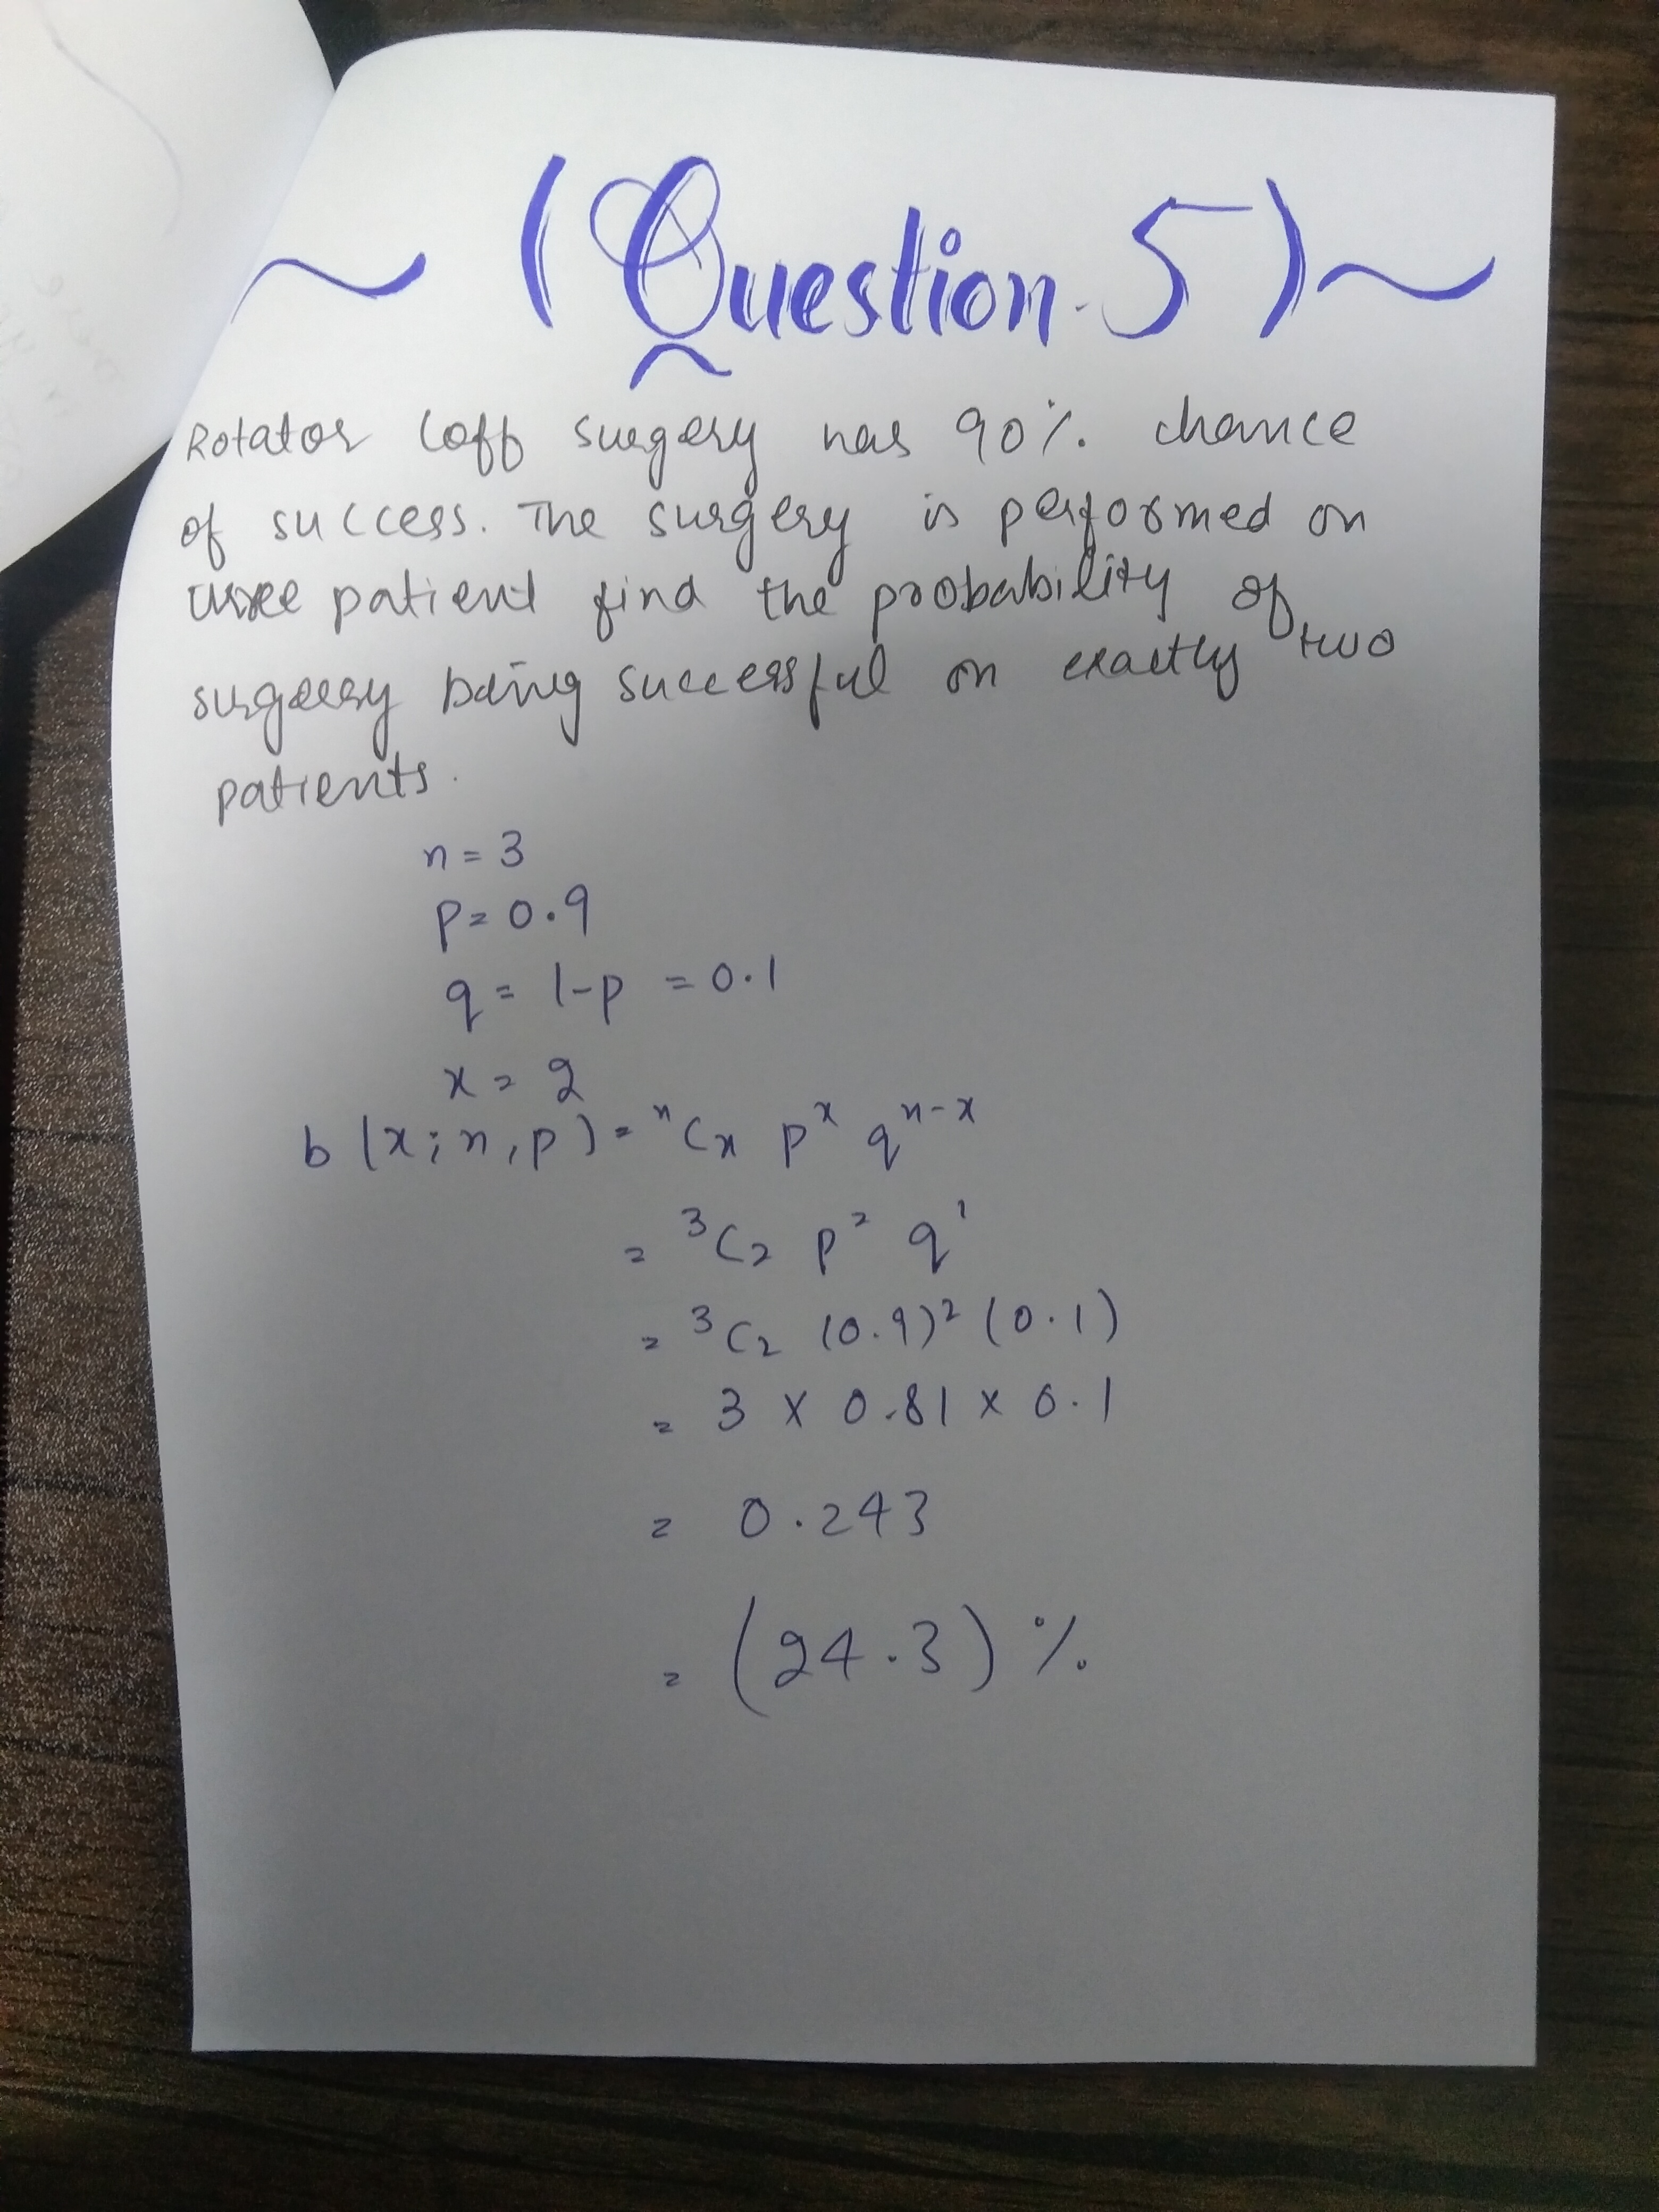 ~ (Question. 5) ~
Rotator Coff surgery has 90% chance
of success. The surgery is performed on
three patient find the probability of
surgeery being successful on exactly two
patients.
n = 3
p = 0.9
q = 1-p = 0.1
x = 2
b (x; n, p) = ⁿCₓ pˣ qⁿ⁻ˣ
= ³C₂ p² q¹
= ³C₂ (0.9)² (0.1)
= 3 x 0.81 x 0.1
= 0.243
= (24.3) %